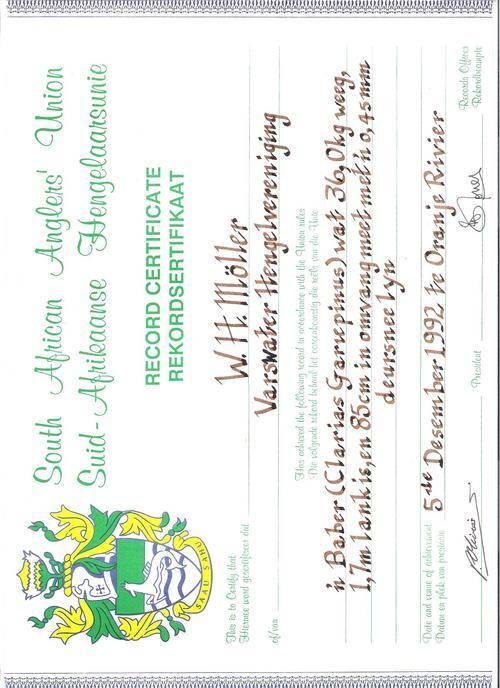 South African Anglers' Union
Suid-Afrikaanse Hengelaarsunie
RECORD CERTIFICATE
REKORDSERTIFIKAAT
SAAU SAHU
This is to Certify that
Hiermee word gesertifiseer dat
W.H. Möller
of/van
Varswater Hengelvereniging
Has achieved the following record in accordance with the Union rules
Die volgende rekord behaal het ooreenkomstig die reëls van die Unie
'n Baber (Clarias Gariepinus) wat 36,0kg weeg,
1,7m lank is, en 85cm in omvang meet met 'n 0,45mm
deursnee lyn
Date and venue of achievement
Datum en plek van prestasie
5de Desember 1992 te Oranje Rivier
President
Records Officer
Rekordbeampte